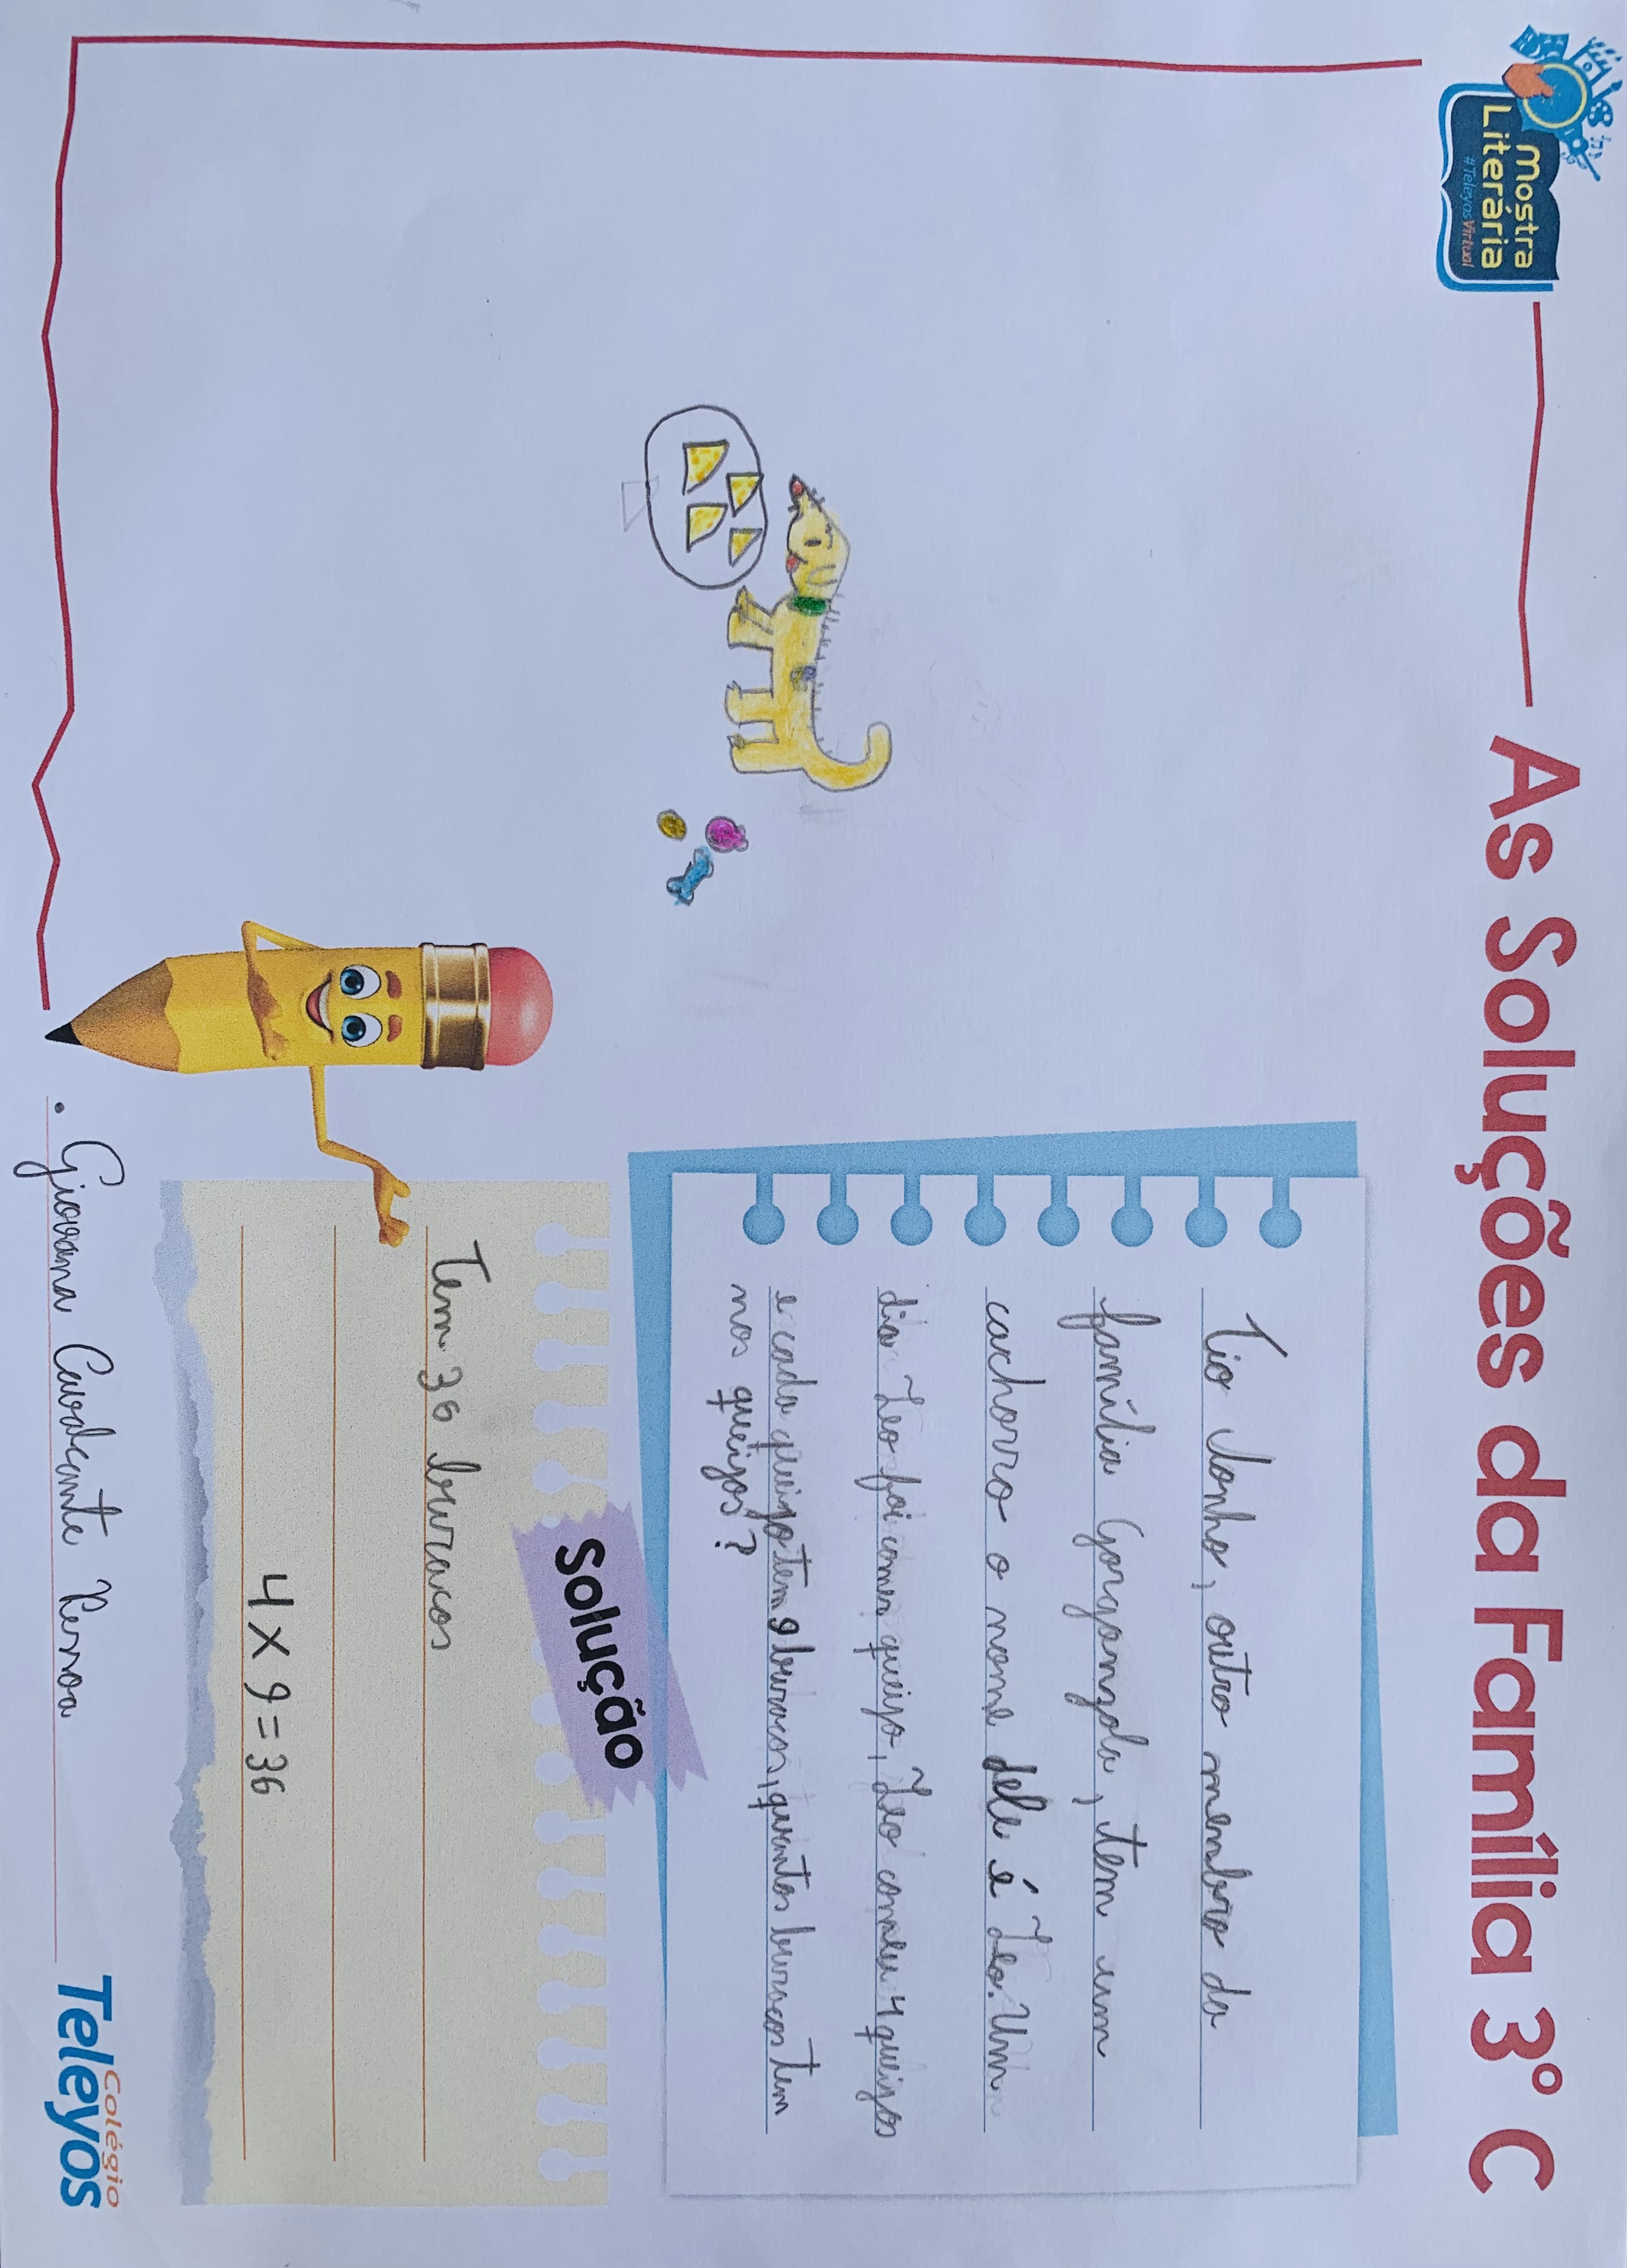 Mostra
Literária
#TeleyosVirtual
As Soluções da Família 3º C
Tio Nonho, outro membro da
família Gorgonzola, tem um
cachorro o nome dele é Leo. Um
dia Leo foi comer queijo, Leo comeu 4 queijos
e cada queijo tem 9 buracos, quantos buracos tem
nos queijos?
Solução
Tem 36 buracos
4 X 9 = 36
. Giovana Cavalcante Pessoa
Colégio
Teleyos